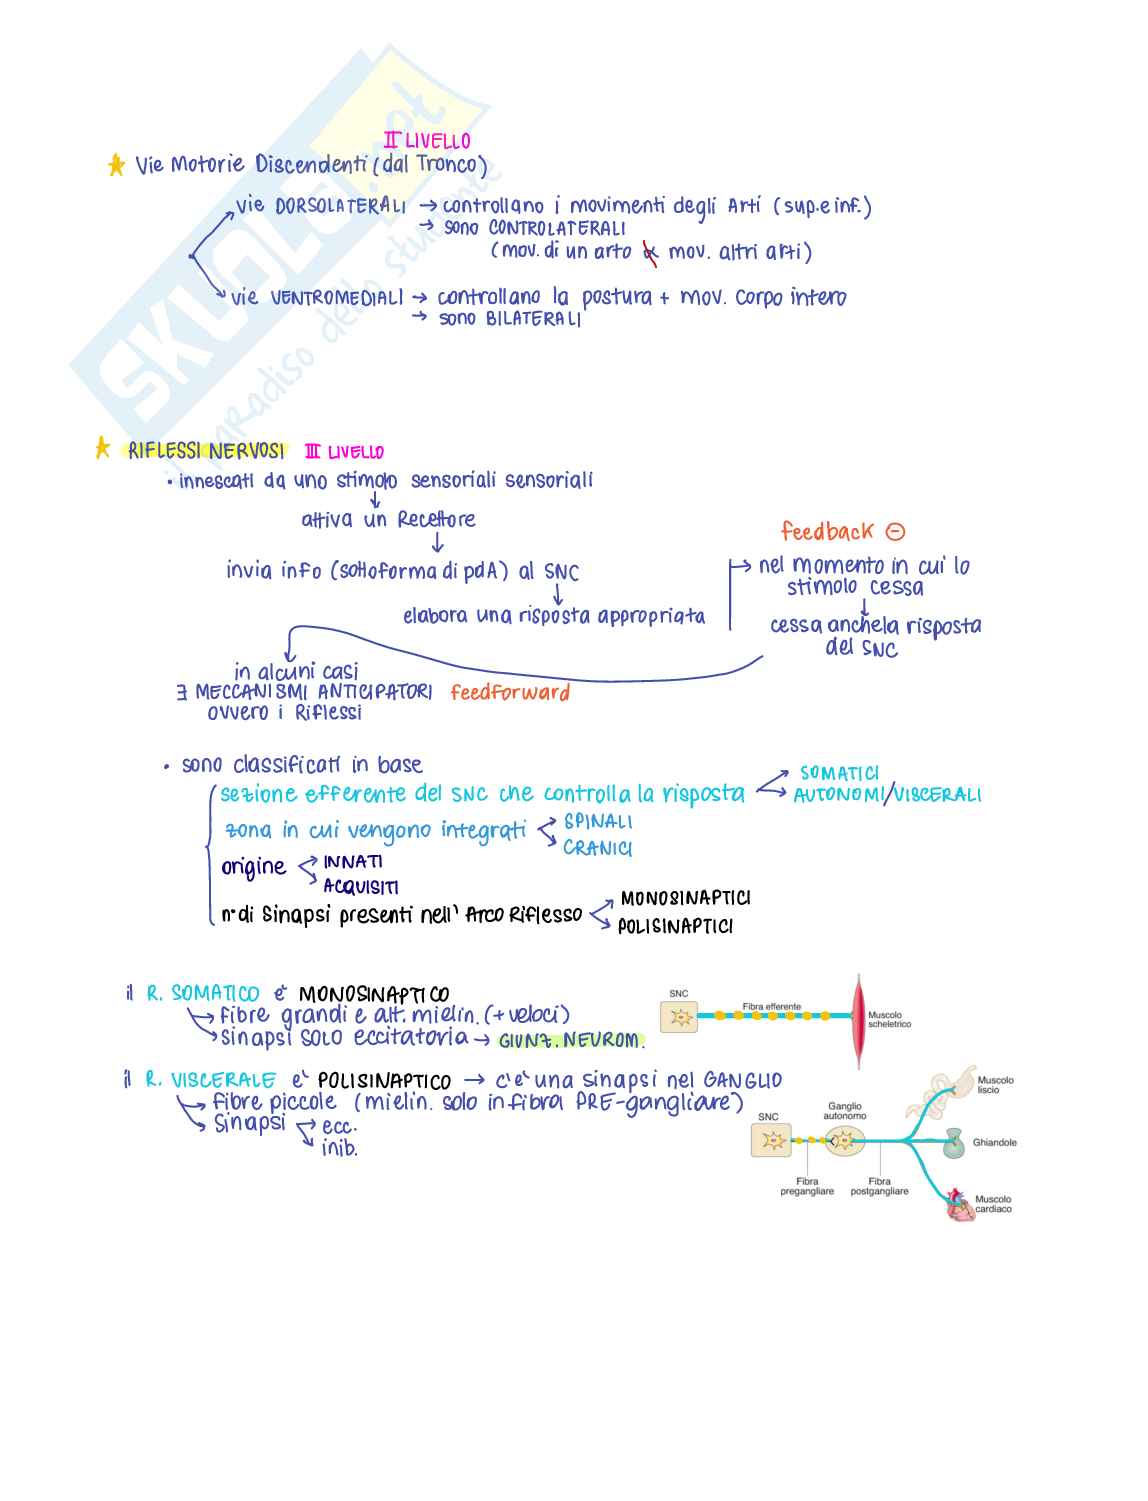 II LIVELLO
Vie Motorie Discendenti (dal Tronco)
vie DORSOLATERALI → controllano i movimenti degli Arti (sup. e inf.)
→ sono CONTROLATERALI
(mov. di un arto ∝ mov. altri arti)
vie VENTROMEDIALI → controllano la postura + mov. corpo intero
→ sono BILATERALI
SKUOLA.net
il paradiso dello studente
RIFLESSI NERVOSI III LIVELLO
• innescati da uno stimolo sensoriali sensoriali
attiva un Recettore
invia info (sottoforma di pdA) al SNC
elabora una risposta appropriata
feedback ⊖
nel momento in cui lo
stimolo cessa
cessa anche la risposta
del SNC
in alcuni casi
∃ MECCANISMI ANTICIPATORI feedforward
ovvero i Riflessi
• sono classificati in base
sezione efferente del SNC che controlla la risposta
SOMATICI
AUTONOMI/VISCERALI
zona in cui vengono integrati
SPINALI
CRANICI
origine
INNATI
ACQUISITI
n° di Sinapsi presenti nell' Arco Riflesso
MONOSINAPTICI
POLISINAPTICI
il R. SOMATICO e' MONOSINAPTICO
→ fibre grandi e alt. mielin. (+ veloci)
→ sinapsi SOLO eccitatoria → GIUNZ. NEUROM.
SNC
Fibra efferente
Muscolo
scheletrico
il R. VISCERALE e' POLISINAPTICO → c'e' una sinapsi nel GANGLIO
→ fibre piccole (mielin. solo in fibra PRE-gangliare)
→ Sinapsi → ecc.
→ inib.
SNC
Ganglio
autonomo
Fibra
pregangliare
Fibra
postgangliare
Muscolo
liscio
Ghiandole
Muscolo
cardiaco